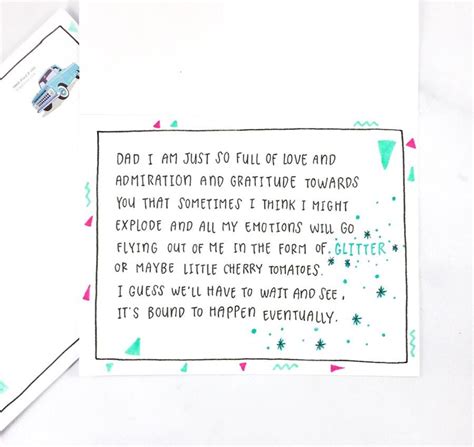 DAD I AM JUST SO FULL OF LOVE AND
ADMIRATION AND GRATITUDE TOWARDS
YOU THAT SOMETIMES I THINK I MIGHT
EXPLODE AND ALL MY EMOTIONS WILL GO
FLYING OUT OF ME IN THE FORM OF GLITTER
OR MAYBE LITTLE CHERRY TOMATOES.
I GUESS WE'LL HAVE TO WAIT AND SEE,
IT'S BOUND TO HAPPEN EVENTUALLY.